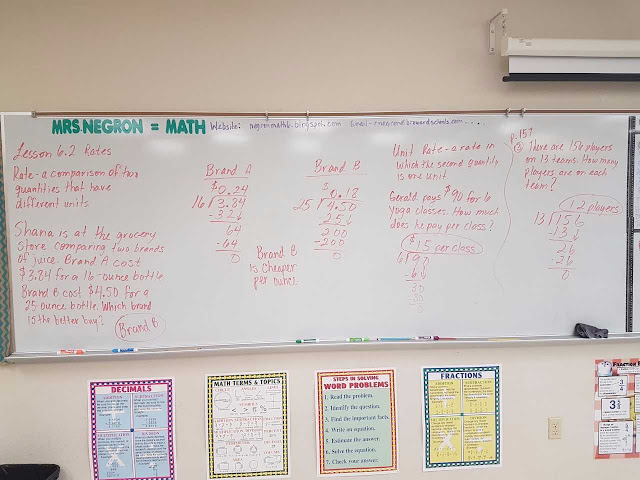 MRS. NEGRON = MATH
Website: negronmath6.blogspot.com
Lesson 6.2 Rates
Rate - a comparison of two
quantities that have
different units
Shana is at the grocery
store comparing two brands
of juice. Brand A cost
$3.84 for a 16-ounce bottle
Brand B cost $4.50 for a
25-ounce bottle. Which brand
is the better buy?
Brand B
Brand A
$0.24
16 3.84
-32↓
64
-64
0
Brand B
$0.18
25 4.50
-25↓
200
-200
0
Brand B
is cheaper
per ounce
Unit Rate - a rate in
which the second quantity
is one unit
Gerald pays $90 for 6
yoga classes. How much
does he pay per class?
$15 per class
6 90
-6↓
30
30
0
p. 157
There are 156 players
on 13 teams. How many
players are on each
team?
12 players
13 156
-13↓
26
-26
0
DECIMALS
ADDITION
SUBTRACTION
MATH TERMS & TOPICS
STEPS IN SOLVING
WORD PROBLEMS
1. Read the problem.
2. Identify the question.
3. Find the important facts.
4. Write an equation.
5. Estimate the answer.
6. Solve the equation.
7. Check your answer.
FRACTIONS
ADDITION
SUBTRACTION